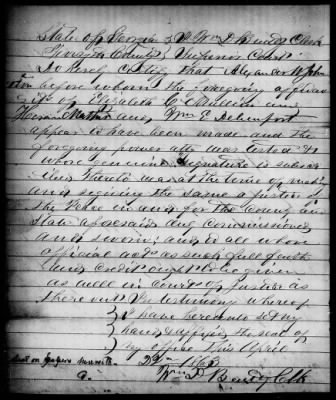 State of Georgia } I Wm D Bandy Clerk
County } Superior Court
Do hereby certify that Alexander W John
ston before whom the foregoing affidav
its of Elizabeth C. Mullin
and Wm E. Delimport
appear to have been made and the
foregoing power atty was tested &
whose genuine signature is subscri
bed thereto was at the time of making
and signing the same a Justice of
the Peace in and for the County and
State aforesaid duly commissioned
and sworn, and to all whose
official acts as such full faith
and credit ought to be given
as well in courts of Justice as
there out In testimony whereof
I have hereunto set my
hand & affixed the seal of
my office This April
2d 1863
Wm D Bandy Clk
not on
a.